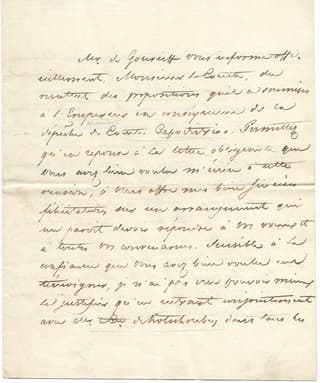 Mr. de Gourieff vous informe offi-
ciellement, Monsieur le Comte, du
résultat des propositions qu'il a soumises
à l'Empereur en conséquence de la
dépêche du Comte Capodistrias. Permettez
qu'en réponse à la lettre obligeante que
vous avez bien voulu m'écrire à cette
occasion, je vous offre mes bien sincères
félicitations sur un arrangement qui
me paroit devoir répondre à vos vœux et
à toutes vos convenances. Sensible à la
confiance que vous avez bien voulu me
témoigner, je n'ai pas cru pouvoir mieux
la justifier qu'en entrant conjointement
avec de Kotschoubey, dans tous les